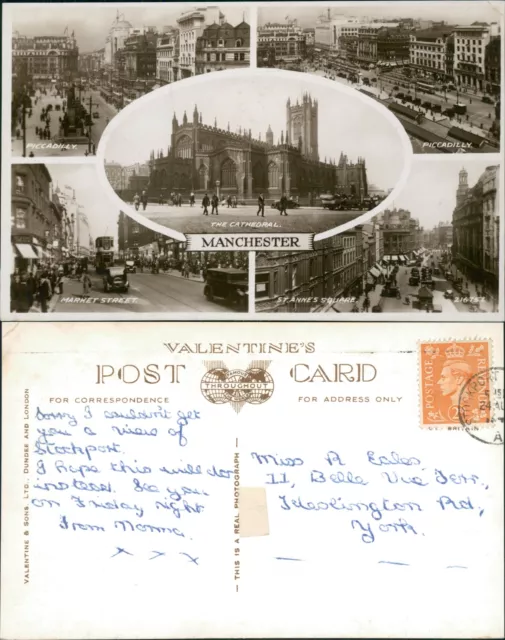 PICCADILLY.
PICCADILLY.
THE CATHEDRAL.
MANCHESTER
MARKET STREET.
ST. ANNE'S SQUARE.
216753
VALENTINE'S
POST CARD
THROUGHOUT
FOR CORRESPONDENCE
FOR ADDRESS ONLY
VALENTINE & SONS. LTD. DUNDEE AND LONDON
THIS IS A REAL PHOTOGRAPH
POSTAGE
Sorry I couldn't get
you a view of
Stockport.
I hope this will do
instead. See you
on Friday night
from Monna.
x x x
Miss A Eales.
11, Bella Vue Terr.,
Heslington Rd,
York.